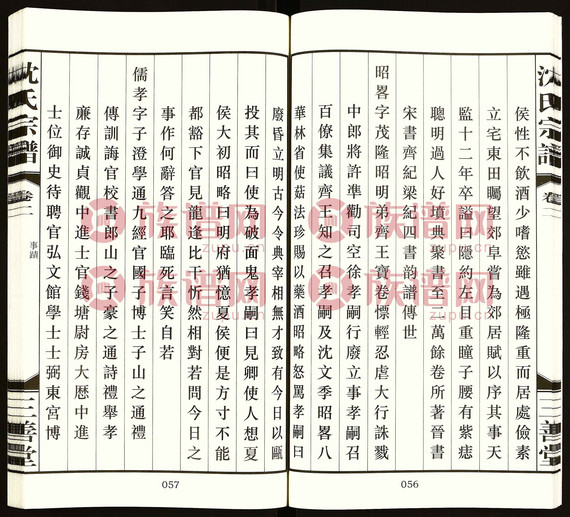 沈氏宗譜
卷二
三善堂
侯性不飲酒少嗜慾雖遇極隆重而居處儉素
立宅東田矚望郊阜嘗為郊居賦以序其事天
監十二年卒諡曰隱約左目重瞳子腰有紫痣
聰明過人好墳典聚書至二萬餘卷所著晉書
宋書齊紀梁紀四書韵譜傳世
昭畧字茂隆昭明弟齊王寶卷慓輕忍虐大行誅戮
中郎將許準勸司空徐孝嗣行廢立事孝嗣召
百僚集議齊王知之召孝嗣及沈文季昭畧八
華林省使茹法珍賜以藥酒昭略怒罵孝嗣曰
056
廢昏立明古今令典宰相無才致有今日以甌
投其面曰使為破面鬼孝嗣曰見卿使人想夏
侯大初昭略曰明府猶憶夏侯便是方寸不能
都豁下官見龍逄比干忻然相對若問今日之
事作何辭答之邪臨死言笑自若
儒孝字子澄學通九經官國子博士子山之通禮
傳訓誨官校書郎山之子豪之通詩禮舉孝
廉存誠貞觀中進士官錢塘尉房大曆中進
士位御史待聘官弘文館學士士弼東宮博
沈氏宗譜
卷二
事蹟
三善堂
057
族谱网
zupu.cn
族谱网
zupu.cn
族谱网
zupu.cn
族谱网
zupu.cn